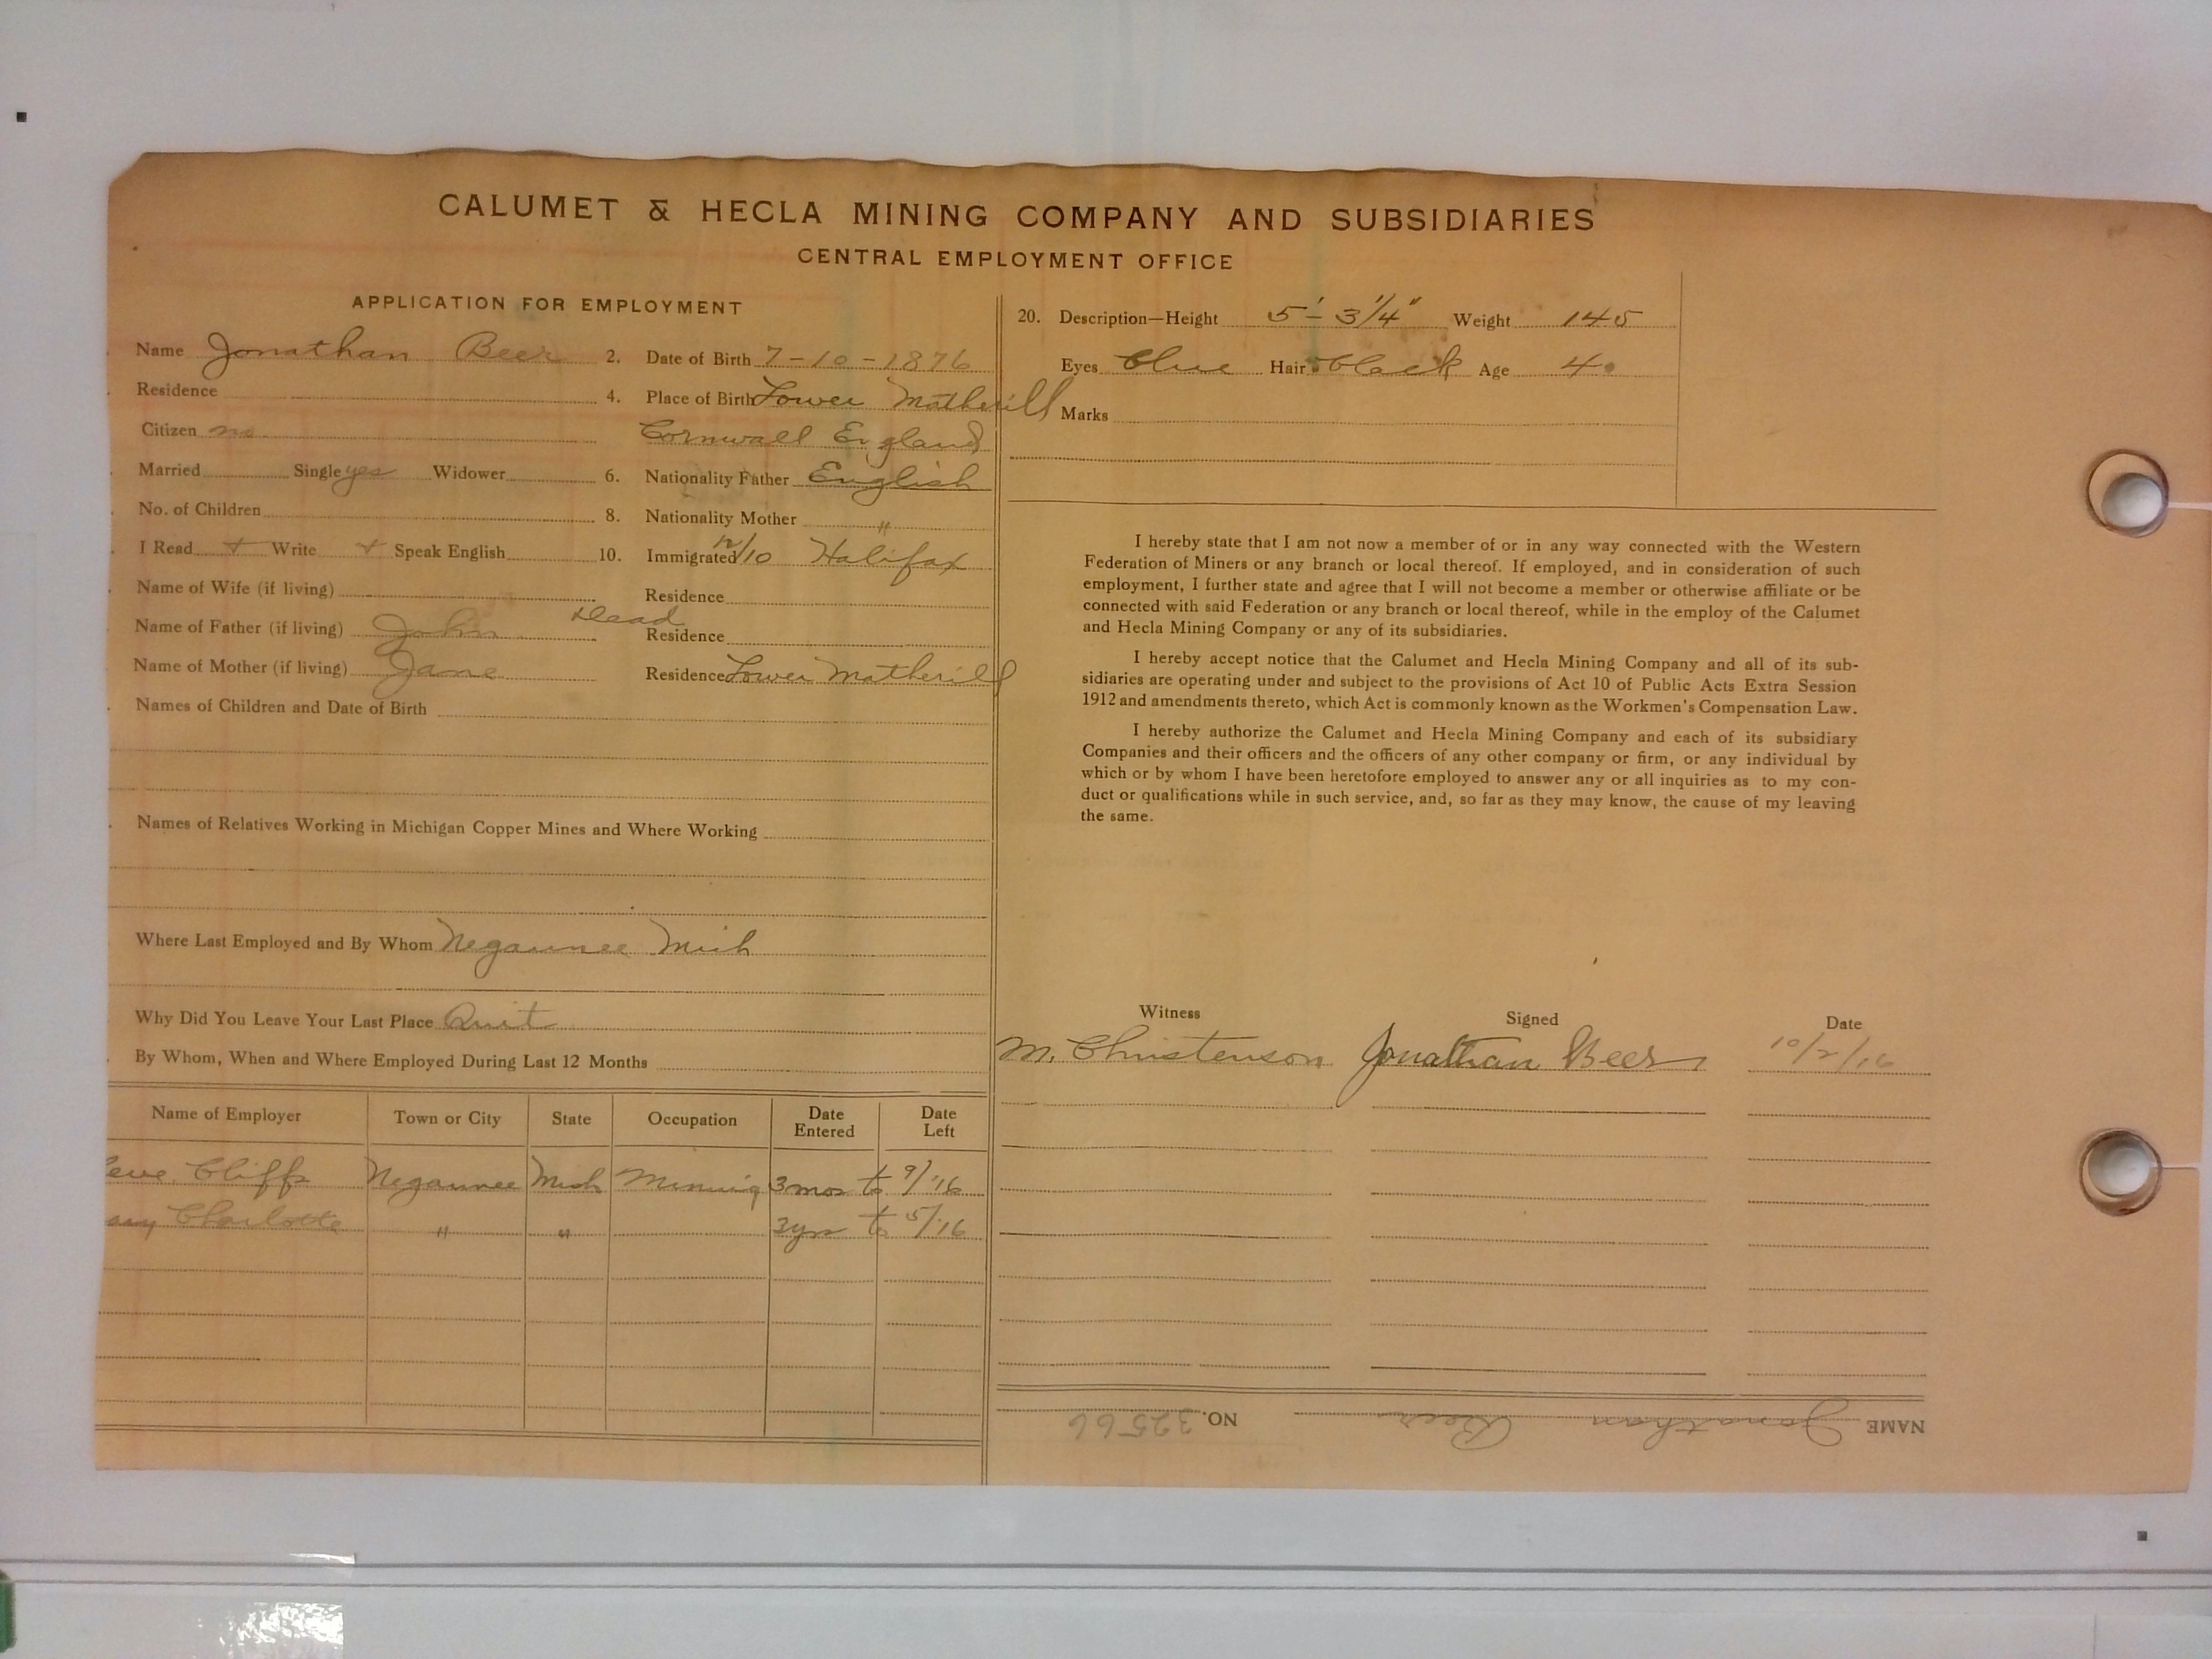 CALUMET & HECLA MINING COMPANY AND SUBSIDIARIES
CENTRAL EMPLOYMENT OFFICE
APPLICATION FOR EMPLOYMENT
Name Jonathan Beer 2. Date of Birth 7-10-1876
Residence 4. Place of Birth Lower Matherill
Citizen no Cornwall England
Married Single yes Widower 6. Nationality Father English
No. of Children 8. Nationality Mother "
I Read + Write + Speak English 10. Immigrated 12/10 Halifax
Name of Wife (if living) Residence
Name of Father (if living) John Dead Residence
Name of Mother (if living) Jane Residence Lower Matherill
Names of Children and Date of Birth
Names of Relatives Working in Michigan Copper Mines and Where Working
Where Last Employed and By Whom Negaunee Mich
Why Did You Leave Your Last Place Quit
By Whom, When and Where Employed During Last 12 Months
Name of Employer Town or City State Occupation Date Entered Date Left
eve. Cliffs Negaunee Mich Mining 3 mos to 9/16
Charlotte " " 3 yrs to 5/16
20. Description—Height 5'-3 1/4" Weight 145
Eyes blue Hair black Age 40
Marks
I hereby state that I am not now a member of or in any way connected with the Western
Federation of Miners or any branch or local thereof. If employed, and in consideration of such
employment, I further state and agree that I will not become a member or otherwise affiliate or be
connected with said Federation or any branch or local thereof, while in the employ of the Calumet
and Hecla Mining Company or any of its subsidiaries.
I hereby accept notice that the Calumet and Hecla Mining Company and all of its sub-
sidiaries are operating under and subject to the provisions of Act 10 of Public Acts Extra Session
1912 and amendments thereto, which Act is commonly known as the Workmen's Compensation Law.
I hereby authorize the Calumet and Hecla Mining Company and each of its subsidiary
Companies and their officers and the officers of any other company or firm, or any individual by
which or by whom I have been heretofore employed to answer any or all inquiries as to my con-
duct or qualifications while in such service, and, so far as they may know, the cause of my leaving
the same.
Witness Signed Date
M. Christenson Jonathan Beer 10/2/16
NAME Jonathan Beer NO. 32566